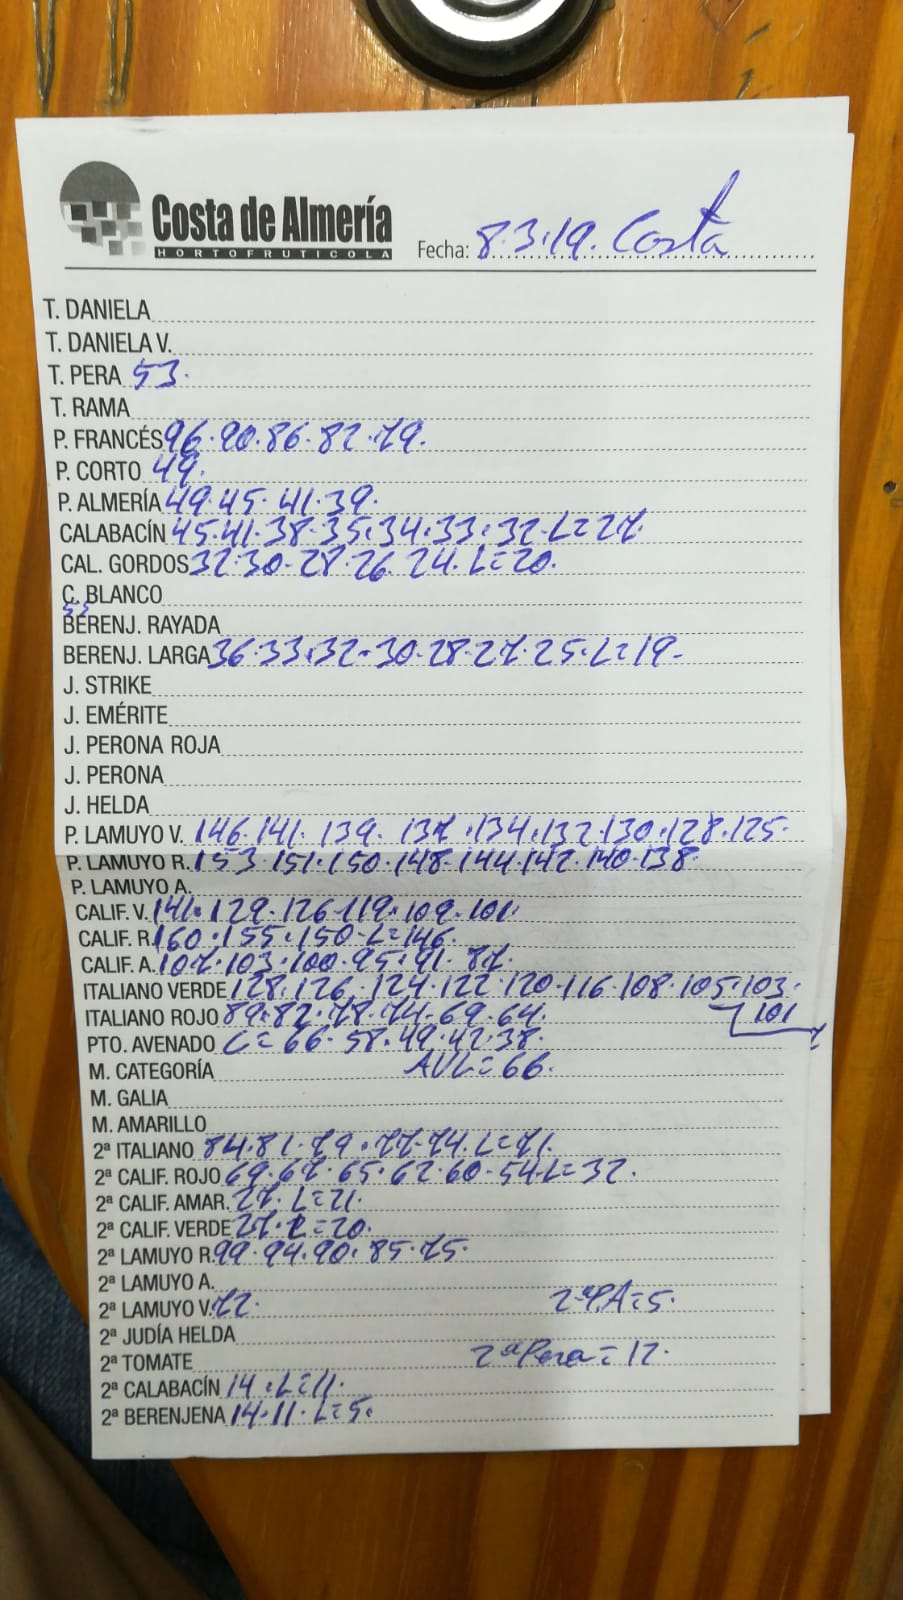 Costa de Almería
HORTOFRUTICOLA
Fecha: 8.3.19. Costa
T. DANIELA
T. DANIELA V.
T. PERA 53.
T. RAMA
P. FRANCÉS 96.90.86.82.79.
P. CORTO 49.
P. ALMERÍA 49.45.41.39.
CALABACÍN 45.41.38.35.34.33.32.L=27.
CAL. GORDOS 32.30.28.26.24.L=20.
C. BLANCO
53
BERENJ. RAYADA
BERENJ. LARGA 36.33.32.30.28.27.25.L=19-
J. STRIKE
J. EMÉRITE
J. PERONA ROJA
J. PERONA
J. HELDA
P. LAMUYO V. 146.141.139.137.134.132.130.128.125.
P. LAMUYO R. 153.151.150.148.144.142.140.138.
P. LAMUYO A.
CALIF. V. 141.129.126.119.109.101.
CALIF. R. 160.155.150-L=146.
CALIF. A. 107.103.100.95.91.87.
ITALIANO VERDE 128.126.124.122.120.116.108.105.103.
ITALIANO ROJO 89.82.78.74.69.64. 101
PTO. AVENADO L=66.58.49.42.38.
M. CATEGORÍA AVL=66.
M. GALIA
M. AMARILLO
2ª ITALIANO 84.81.79.77.74.L=71.
2ª CALIF. ROJO 69.67.65.62.60.54.L=32.
2ª CALIF. AMAR. 27.L=21.
2ª CALIF. VERDE 27.L=20.
2ª LAMUYO R. 99.94.90.85.75.
2ª LAMUYO A.
2ª LAMUYO V. 72. 2ªPA=5.
2ª JUDÍA HELDA
2ª TOMATE 2ªPera=12.
2ª CALABACÍN 14.L=11.
2ª BERENJENA 14.11.L=5.